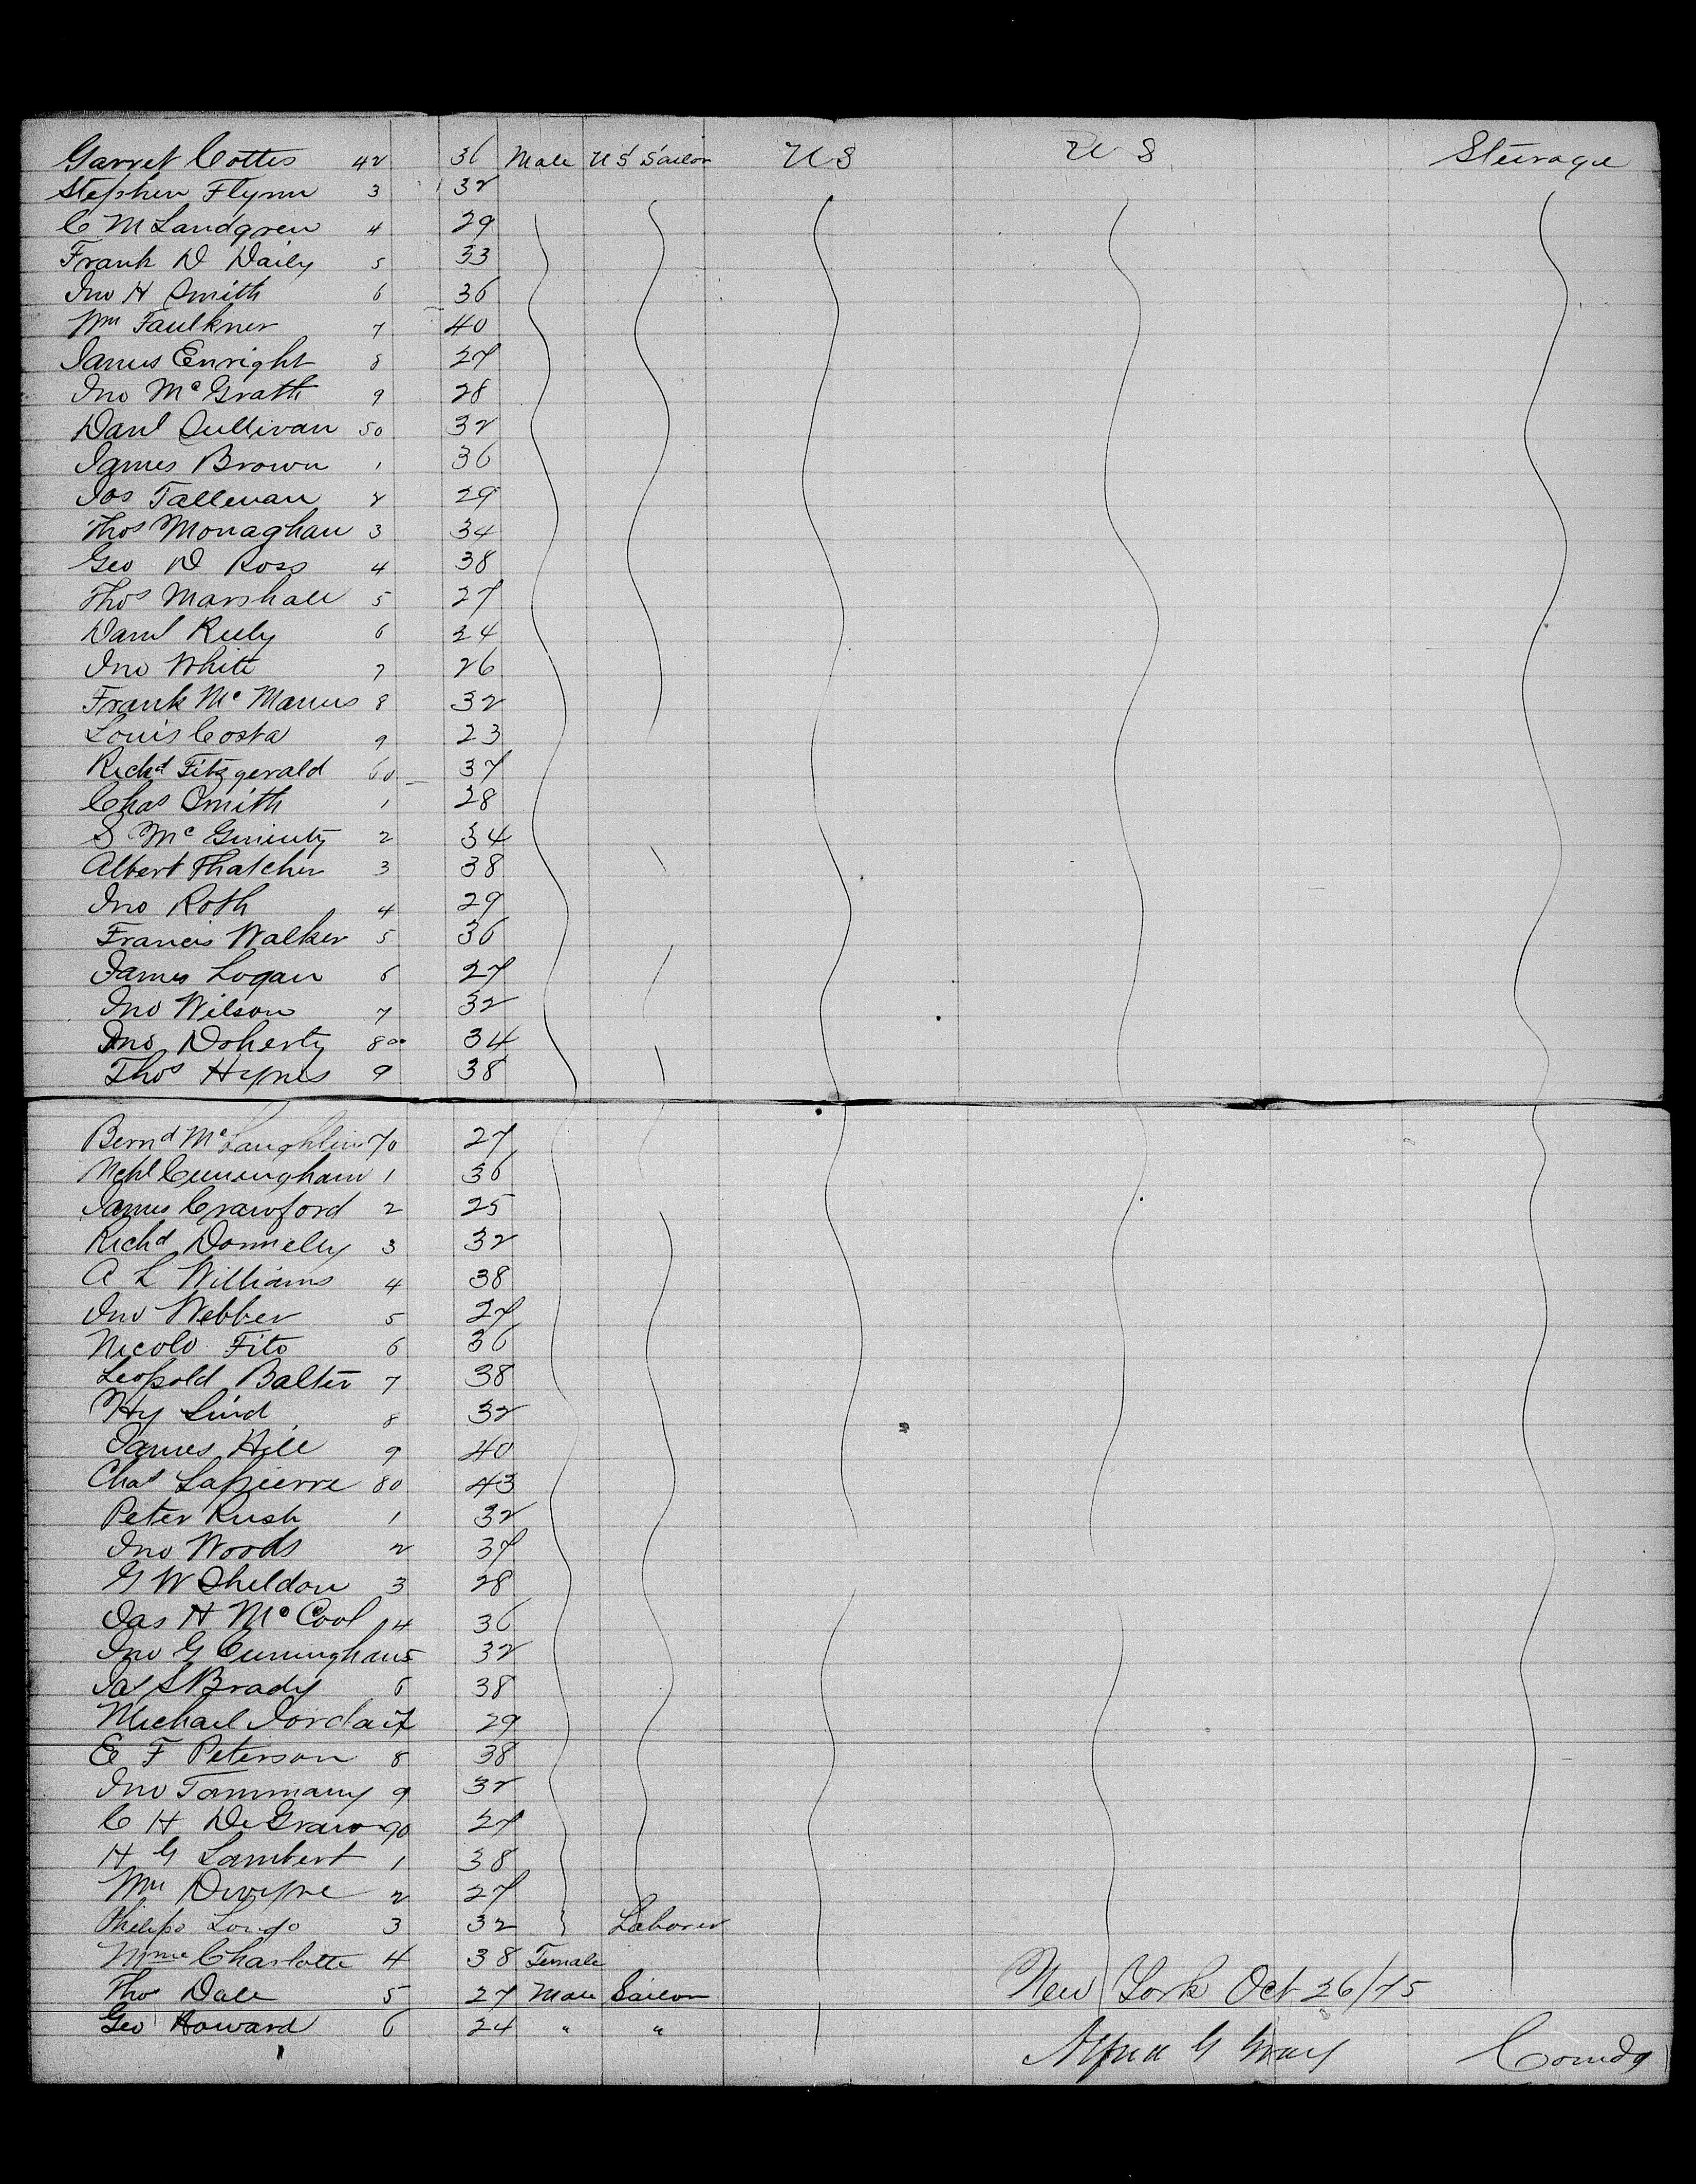 Garret Cottes 42 36 Male U S Sailor U S U S Steerage
Stephen Flynn 3 32
C M Landgren 4 29
Frank D Daily 5 33
Jno H Smith 6 36
Wm Faulkner 7 40
James Enright 8 27
Jno McGrath 9 28
Danl Sullivan 50 32
James Brown 1 36
Jos Talleman 2 29
Thos Monaghan 3 34
Geo D Ross 4 38
Thos Marshall 5 27
Danl Riely 6 24
Jno White 7 26
Frank McManus 8 32
Louis Costa 9 23
Richd Fitzgerald 60 37
Chas Smith 1 28
S McGininty 2 34
Albert Thatcher 3 38
Jno Roth 4 29
Francis Walker 5 36
James Logan 6 27
Jno Wilson 7 32
Jno Doherty 8 34
Thos Hynes 9 38
Bernd McLaughlin 70 27
Mchl Cuningham 1 36
James Crawford 2 25
Richd Donnelly 3 32
A L Williams 4 38
Jno Webber 5 27
Nicolo Fito 6 36
Leopold Balter 7 38
Hy Lind 8 32
James Hill 9 40
Chas Lapierre 80 43
Peter Rush 1 32
Jno Woods 2 37
G W Sheldon 3 28
Jas H McCool 4 36
Jno G Cuningham 5 32
Jas S Brady 6 38
Michael Jordan 7 29
E F Peterson 8 38
Jno Tammany 9 32
C H DeGraw 90 27
H G Lambert 1 38
Wm Dwyne 2 27
Philipo Longo 3 32 Laborer
Mme Charlotte 4 38 Female
Thos Dale 5 27 Male Sailor New York Oct 26/75
Geo Howard 6 24 " "
Alfred G Gray Comdg